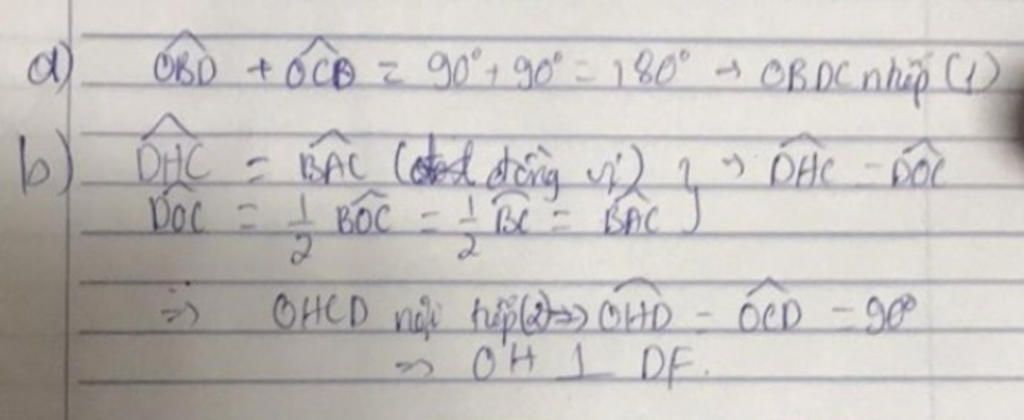 a) OBD + OCD = 90° + 90° = 180° → OBDC ntiếp (1)
b) DHC = BAC (đồng vị) } → DHC = DOC
DOC = 1/2 BOC = 1/2 BC = BAC
=> OHCD nội tiếp (2) => OHD = OCD = 90°
=> OH ⊥ DF.